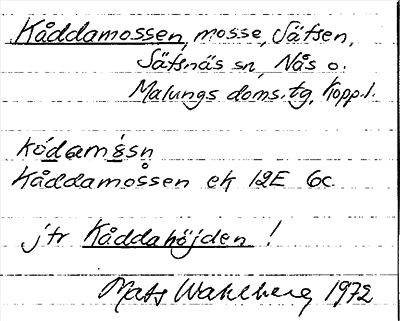 Kåddamossen, mosse, Säfsen,
Säfsnäs sn, Nås o.
Malungs doms.tg, Kopp.l.
kódam̀ås̀n
Kåddamossen ek 12E 6c
jfr Kåddahöjden !
Mats Wahlberg 1972